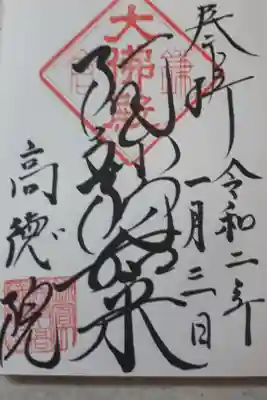 奉拝
令和二年
一月三日
大佛殿
鎌倉
阿弥陀如来
高徳院